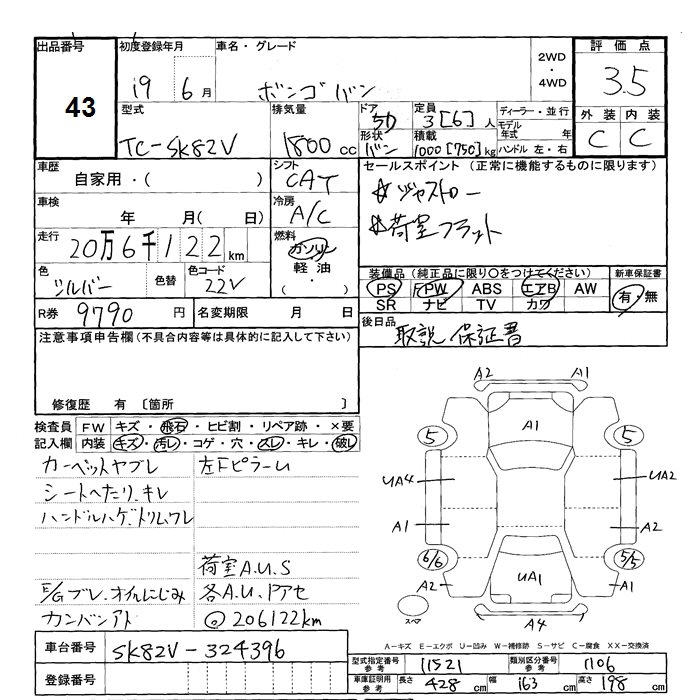 出品番号 初度登録年月 車名・グレード 2WD・4WD 評価点
43 19 6月 ボンゴバン 3.5
型式 排気量 ドア 定員 ディーラー・並行 外装 内装
TC-SK82V 1800cc 5D 3[6]人 モデル年式 年 C C
形状 積載 ハンドル 左・右
バン 1000[750]kg
車歴 シフト セールスポイント(正常に機能するものに限ります)
自家用・( ) CAT ☆ジャストロー
車検 冷房 ☆荷室フラット
年 月( 日) A/C
走行 燃料
20万6千122km ガソリン
色 色替 色コード 軽油
シルバー 22V (・)
装備品(純正品に限り○をつけてください) 新車保証書
PS PW ABS エアB AW 有・無
SR ナビ TV カワ
R券 9790円 名変期限 月 日
後日品 取説 保証書
注意事項申告欄(不具合内容等は具体的に記入して下さい)
修復歴 有 〔箇所 〕
検査員記入欄 FW キズ・飛石・ヒビ割・リペア跡・×要
内装 キズ・汚レ・コゲ・穴・スレ・キレ・破レ
カーペットヤブレ 左Fピラーu
シートヘたり.キレ
ハンドルハゲ.トリムワレ
荷室A.U.S
E/Gブレ.オイルにじみ 各A.U.ドアセ
カンバンアト @206122km
A2 A1
5 A1 5
UA4 UA2
A1 A2
6/6 5/5
A2 UA1 A1
スペア A4
A-キズ E-エクボ U-凹み W-補修跡 S-サビ C-腐食 XX-交換済
車台番号 SK82V-324396
型式指定番号参考 11521 類別区分番号参考 1106
登録番号
車庫証明用参考 長さ 428cm 幅 163cm 高さ 198cm